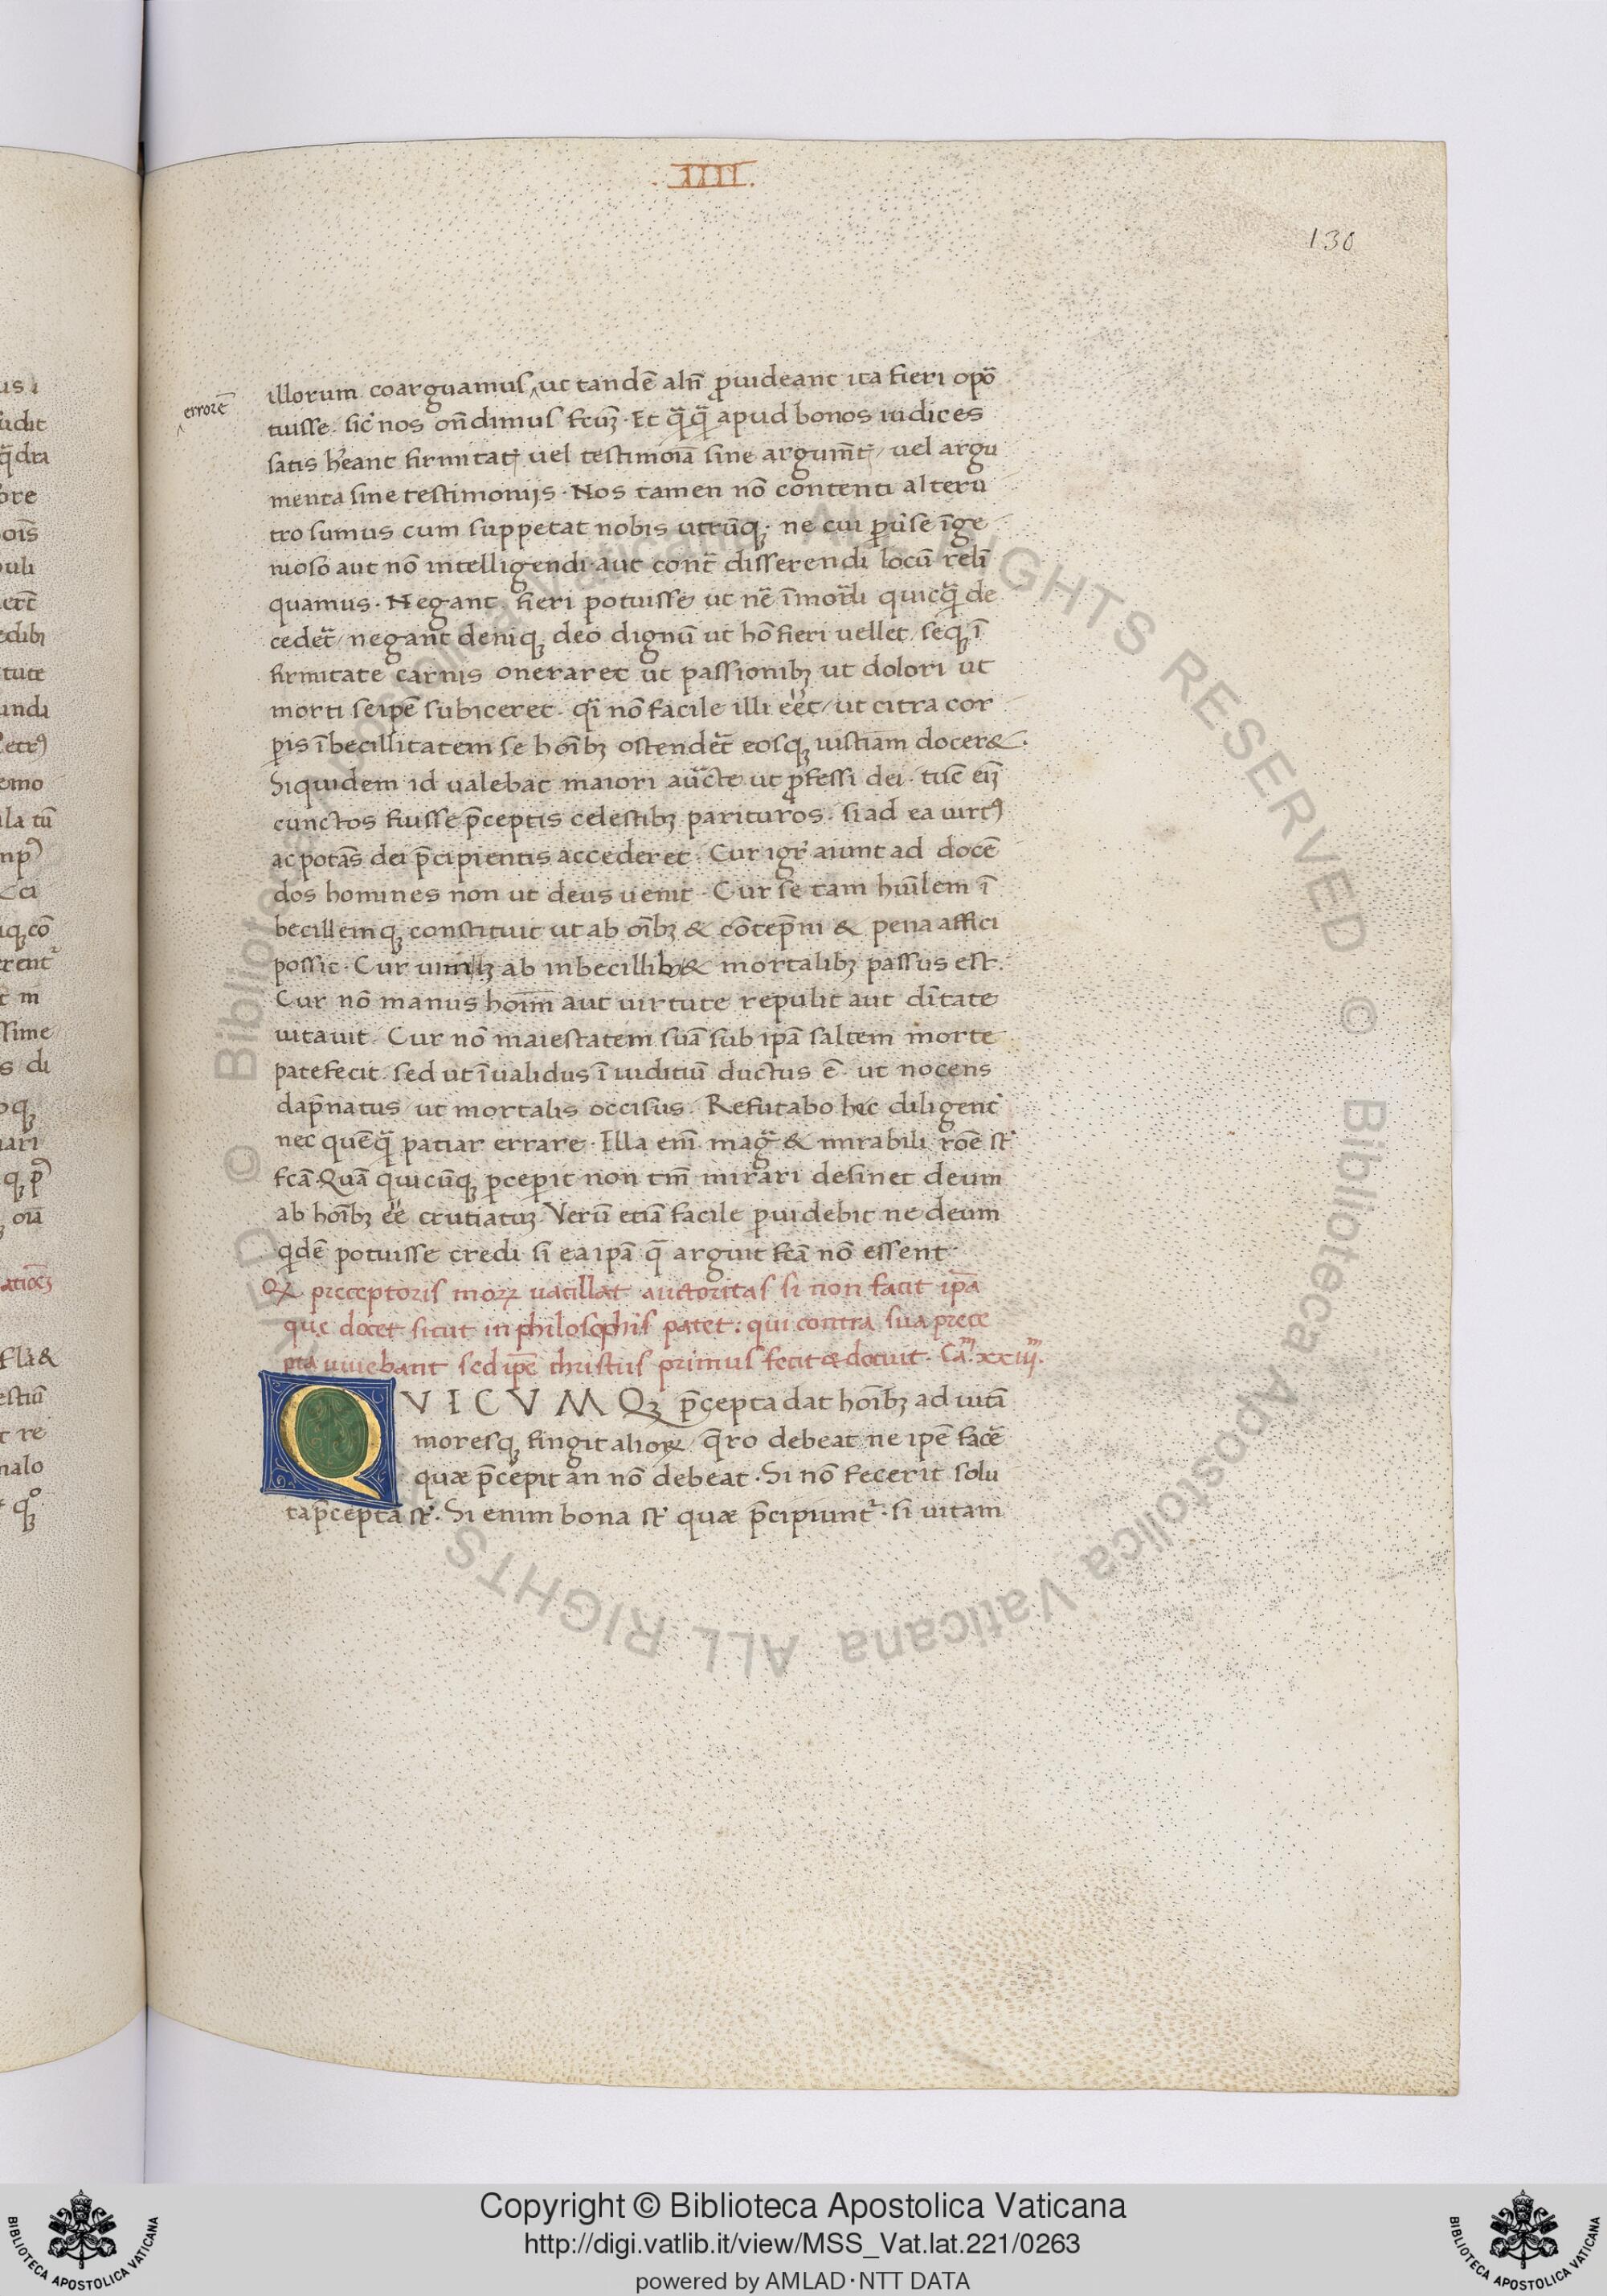 .IIII.
130
illorum coarguamus ut tandē alīn ꝓuideant ita fieri opō
errorē
tuisse. sic̄ nos on̄dimus fcūȝ. Et q̄q̄ apud bonos iudices
satis h̄eant firmitatȷ uel testimoīa sine argum̄tȷ / uel argu
menta sine testimonijs. Nos tamen nō contenti alteru
tro sumus cum suppetat nobis utrūqȝ. ne cui ꝑuīse īge
nioso aut nō intelligendi aut cont̄ disserendi locū reli
quamus. Negant fieri potuisse ut nē īmor̄li quicq̄ de
cedet̄ / negant deniqȝ deo dignū ut hō fieri uellet / seqȝ ī
firmitate carnis oneraret ut passionibȝ ut dolori ut
morti seipē subiceret. q̄i nō facile illi eēt / ut citra cor
ꝑis ībecillitatem se hoībȝ ostendet̄ eosqȝ iustiam docer&.
Siquidem id ualebat maiori auc̄te ut ꝓfessi dei. tūc eīȝ
cunctos fuisse p̄ceptis celestibȝ parituros. si ad ea uirtꝰ
ac potās dei p̄cipientis accederet. Cur igr̄ aiunt ad docē
dos homines non ut deus uenit. Cur se tam huīlem ī
becillemqȝ constituit ut ab oībȝ & cōtep̄ni & pena affici
possit. Cur uim ab inbecillibȝ & mortalibȝ passus est.
Cur nō manus hoīm aut uirtute repulit aut dītate
uitauit. Cur nō maiestatem suā sub ipā saltem morte
patefecit. sed ut īualidus ī iuditiū ductus ē. ut nocens
dap̄natus / ut mortalis occisus. Refutabo hec diligent̄
nec quēq̄ patiar errare. Illa enī maḡ & mirabili roē st̄
fcā. Quā quicūqȝ ꝑcepit non tm̄ mirari desinet deum
ab hoībȝ eē crutiatuȝ. Verū etiā facile ꝑuidebit ne deum
qdē potuisse credi si ea ipā q̄ arguit fcā nō essent.
Qꝛ preceptoris moꝝ uacillat auctoritas si non facit ipā
que docet sicut in philosophis patet: qui contra sua prece
pta uiuebant sed ipē christus primus fecit & docuit. Cā.ᵐ xxiij.ᵐ
QVICVMQȝ p̄cepta dat hoībȝ ad uitā
moresqȝ fingit alioꝝ / q̄ro debeat ne ipē facē
quæ p̄cepit an nō debeat. Si nō fecerit solu
ta p̄cepta st̄. Si enim bona st̄ quæ p̄cipiunt̄. si uitam
Copyright © Biblioteca Apostolica Vaticana
http://digi.vatlib.it/view/MSS_Vat.lat.221/0263
powered by AMLAD·NTT DATA